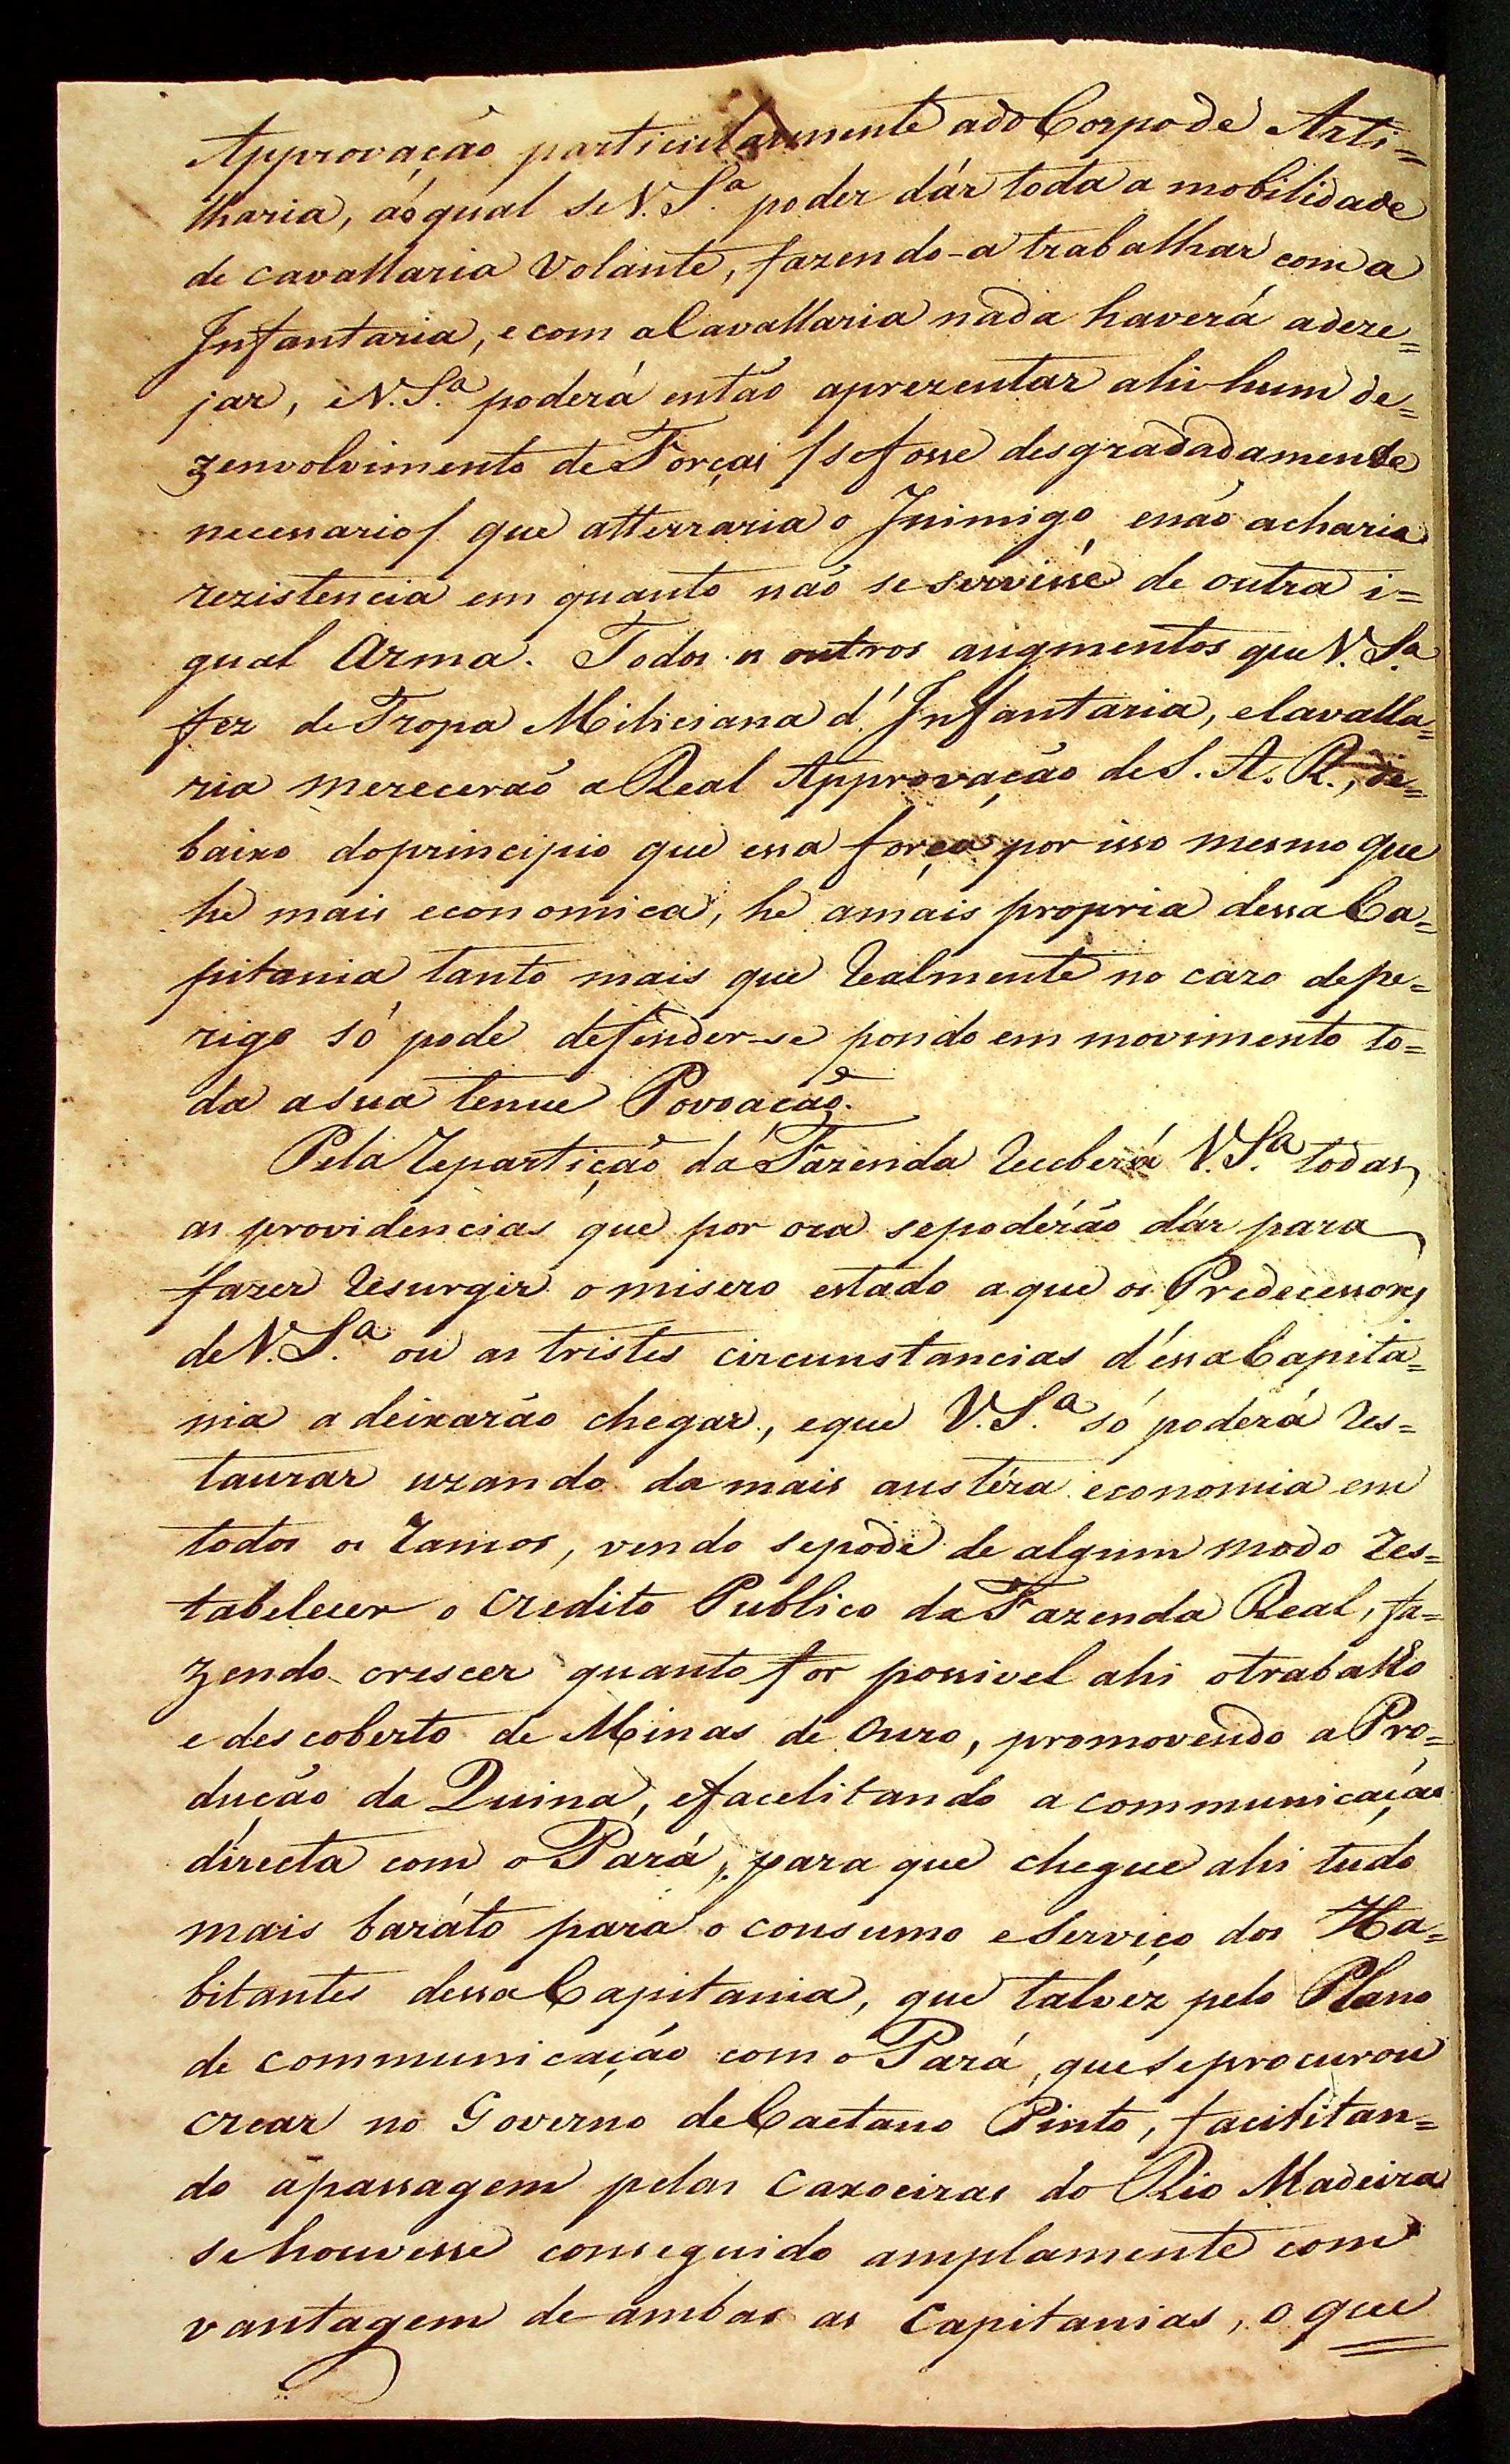 Approvação particularmente a do Corpo de Arti=
lharia, áo qual se V. S.ª poder dár toda a mobilidade
de cavallaria volante, fazendo-a trabalhar com a
Infantaria, e com a Cavallaria nada haverá a deze=
jar, e V. S.ª poderá então aprezentar ahi hum de=
zenvolvimento de Forças /se fosse desgradadamente
necessario/ que atterraria o Inimigo, e não acharia
rezistencia em quanto não se servisse de outra i=
gual Arma. Todos os outros augmentos que V. S.ª
fez de Tropa Miliciana d'Infantaria, e Cavalla=
ria merecerão a Real Approvação de S. A. R., de=
baixo do principio que essa força por isso mesmo que
he mais economica, he a mais propria dessa Ca=
pitania tanto mais que realmente no cazo de pe=
rigo só pode defender-se pondo em movimento to=
da a sua tenue Povoação.
Pela repartição da Fazenda receberá V. S.ª todas
as providencias que por ora se poderão dár para
fazer resurgir o misero estado a que os Predecessores
de V. S.ª ou as tristes circunstancias d'essa Capita=
nia a deixarão chegar, e que V. S.ª só poderá res=
taurar uzando da mais austéra economia em
todos os ramos, vendo se pode de algum modo res=
tabelecer o credito Publico da Fazenda Real, fa=
zendo crescer quanto for possivel ahi o trabalho
e descoberto de Minas de Ouro, promovendo a Pro=
dução da Quina, e facelitando a communicação
directa com o Pará, para que chegue ahi tudo
mais baráto para o consumo e Serviço dos Ha=
bitantes dessa Capitania, que talvez pelo Plano
de communicação com o Pará, que se procurou
crear no Governo de Caetano Pinto, facilitan=
do a passagem pelas Caxoeiras do Rio Madeira
se houvesse conseguido amplamente com
vantagem de ambas as Capitanias, o que